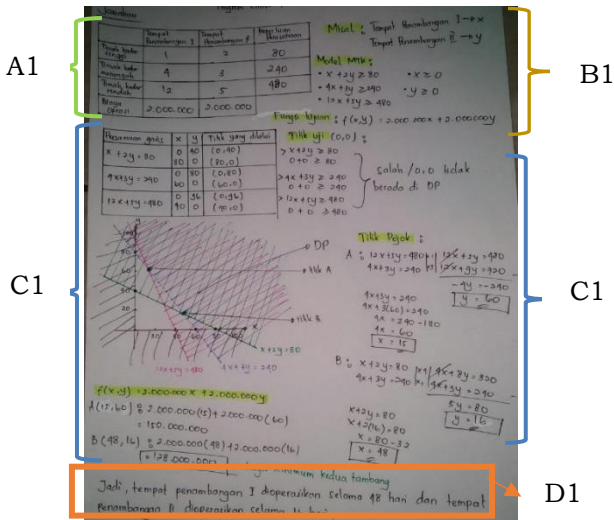 Jawaban
Program
Tempat Penambangan I
Tempat Penambangan II
Perusahaan
Timah kadar tinggi 1 2 80
Timah kadar menengah 4 3 240
Timah kadar rendah 12 5 480
Biaya Operasi 2.000.000 2.000.000
Misal : Tempat Penambangan I → x
Tempat Penambangan II → y
Model MTK :
• x + 2y ≥ 80 • x ≥ 0
• 4x + 3y ≥ 240 • y ≥ 0
• 12x + 5y ≥ 480
Fungsi tujuan : f(x,y) = 2.000.000x + 2.000.000y
A1
B1
Persamaan garis x y Titik yang dilalui
x + 2y = 80 0 40 (0,40)
80 0 (80,0)
4x+3y = 240 0 80 (0,80)
60 0 (60,0)
12x+5y = 480 0 96 (0,96)
40 0 (40,0)
Titik uji (0,0) :
> x+2y ≥ 80
0+0 ≥ 80
> 4x+3y ≥ 240
0+0 ≥ 240
> 12x+5y ≥ 480
0+0 ≥ 480
salah / 0,0 tidak
berada di DP
C1
C1
DP
titik A
titik B
x+2y=80
12x+5y=480
4x+3y=240
Titik Pojok :
A : 12x+5y=480
4x+3y=240
12x+5y=480
12x+9y=720
-4y = -240
y = 60
4x+3y=240
4x+3(60)=240
4x = 240-180
4x = 60
x = 15
B : x+2y=80
4x+3y=240
4x+8y=320
4x+3y=240
5y=80
y = 16
x+2y=80
x+2(16)=80
x = 80-32
x = 48
f(x,y) = 2.000.000x + 2.000.000y
A(15,60) : 2.000.000(15)+2.000.000(60)
= 150.000.000
B(48,16) : 2.000.000(48)+2.000.000(16)
= 128.000.000
minimum kedua tambang
Jadi, tempat penambangan I dioperasikan selama 48 hari dan tempat
Penambangan II dioperasikan selama 16 hari
D1